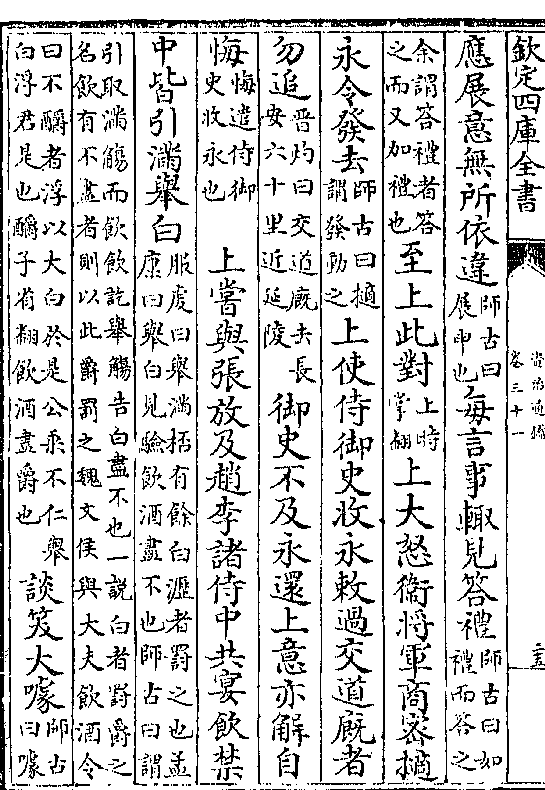 欽定四庫全書
資治通鑑
卷三十一
應展意無所依違師古曰展申也每言事輒見答禮師古曰如禮而答之
余謂答禮者答之而又加禮也至上此對上時掌翻上大怒衞將軍商密擿
永令發去師古曰擿謂發動之上使侍御史收永敕過交道廐者
勿追晉灼曰交道廐去長安六十里近延陵御史不及永還上意亦解自
悔悔遣侍御史收永也 上嘗與張放及趙李諸侍中共宴飲禁
中皆引滿舉白服虔曰舉滿桮有餘白瀝者罰之也孟康曰舉白見驗飲酒盡不也師古曰謂
引取滿觴而飲飲訖舉觴告白盡不也一說白者罰爵之名飲有不盡者則以此爵罰之魏文侯與大夫飲酒令
曰不釂者浮以大白於是公乘不仁舉白浮君是也釂子肖翻飲酒盡爵也談笑大噱師古曰噱